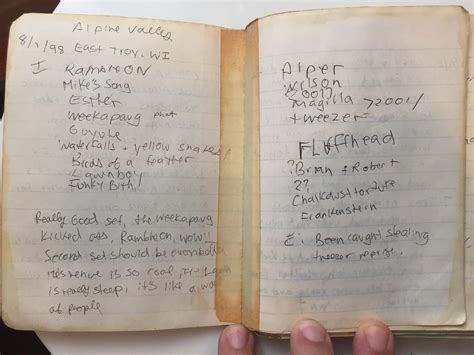 Alpine Valley
8/1/98 East Troy, WI
I Ramble ON
Mike's Song
Esther
Weekapaug phat
Guyute
Fluffhead
Waterfalls + yellow snakes
Birds of a feather
Lawnboy
Funky Bitch
Really Good set, the weekapaug
kicked ass, Ramble on, wow!
Second set should be
venue is so cool,
is really steep, it's like a
of people
Piper
Wilson
2001/
Magilla >2001/
tweezer
FLuffhead
? Brian + Robert
??
Chalkdust torture
Frankenstein
E. Been caught stealing
reprise.